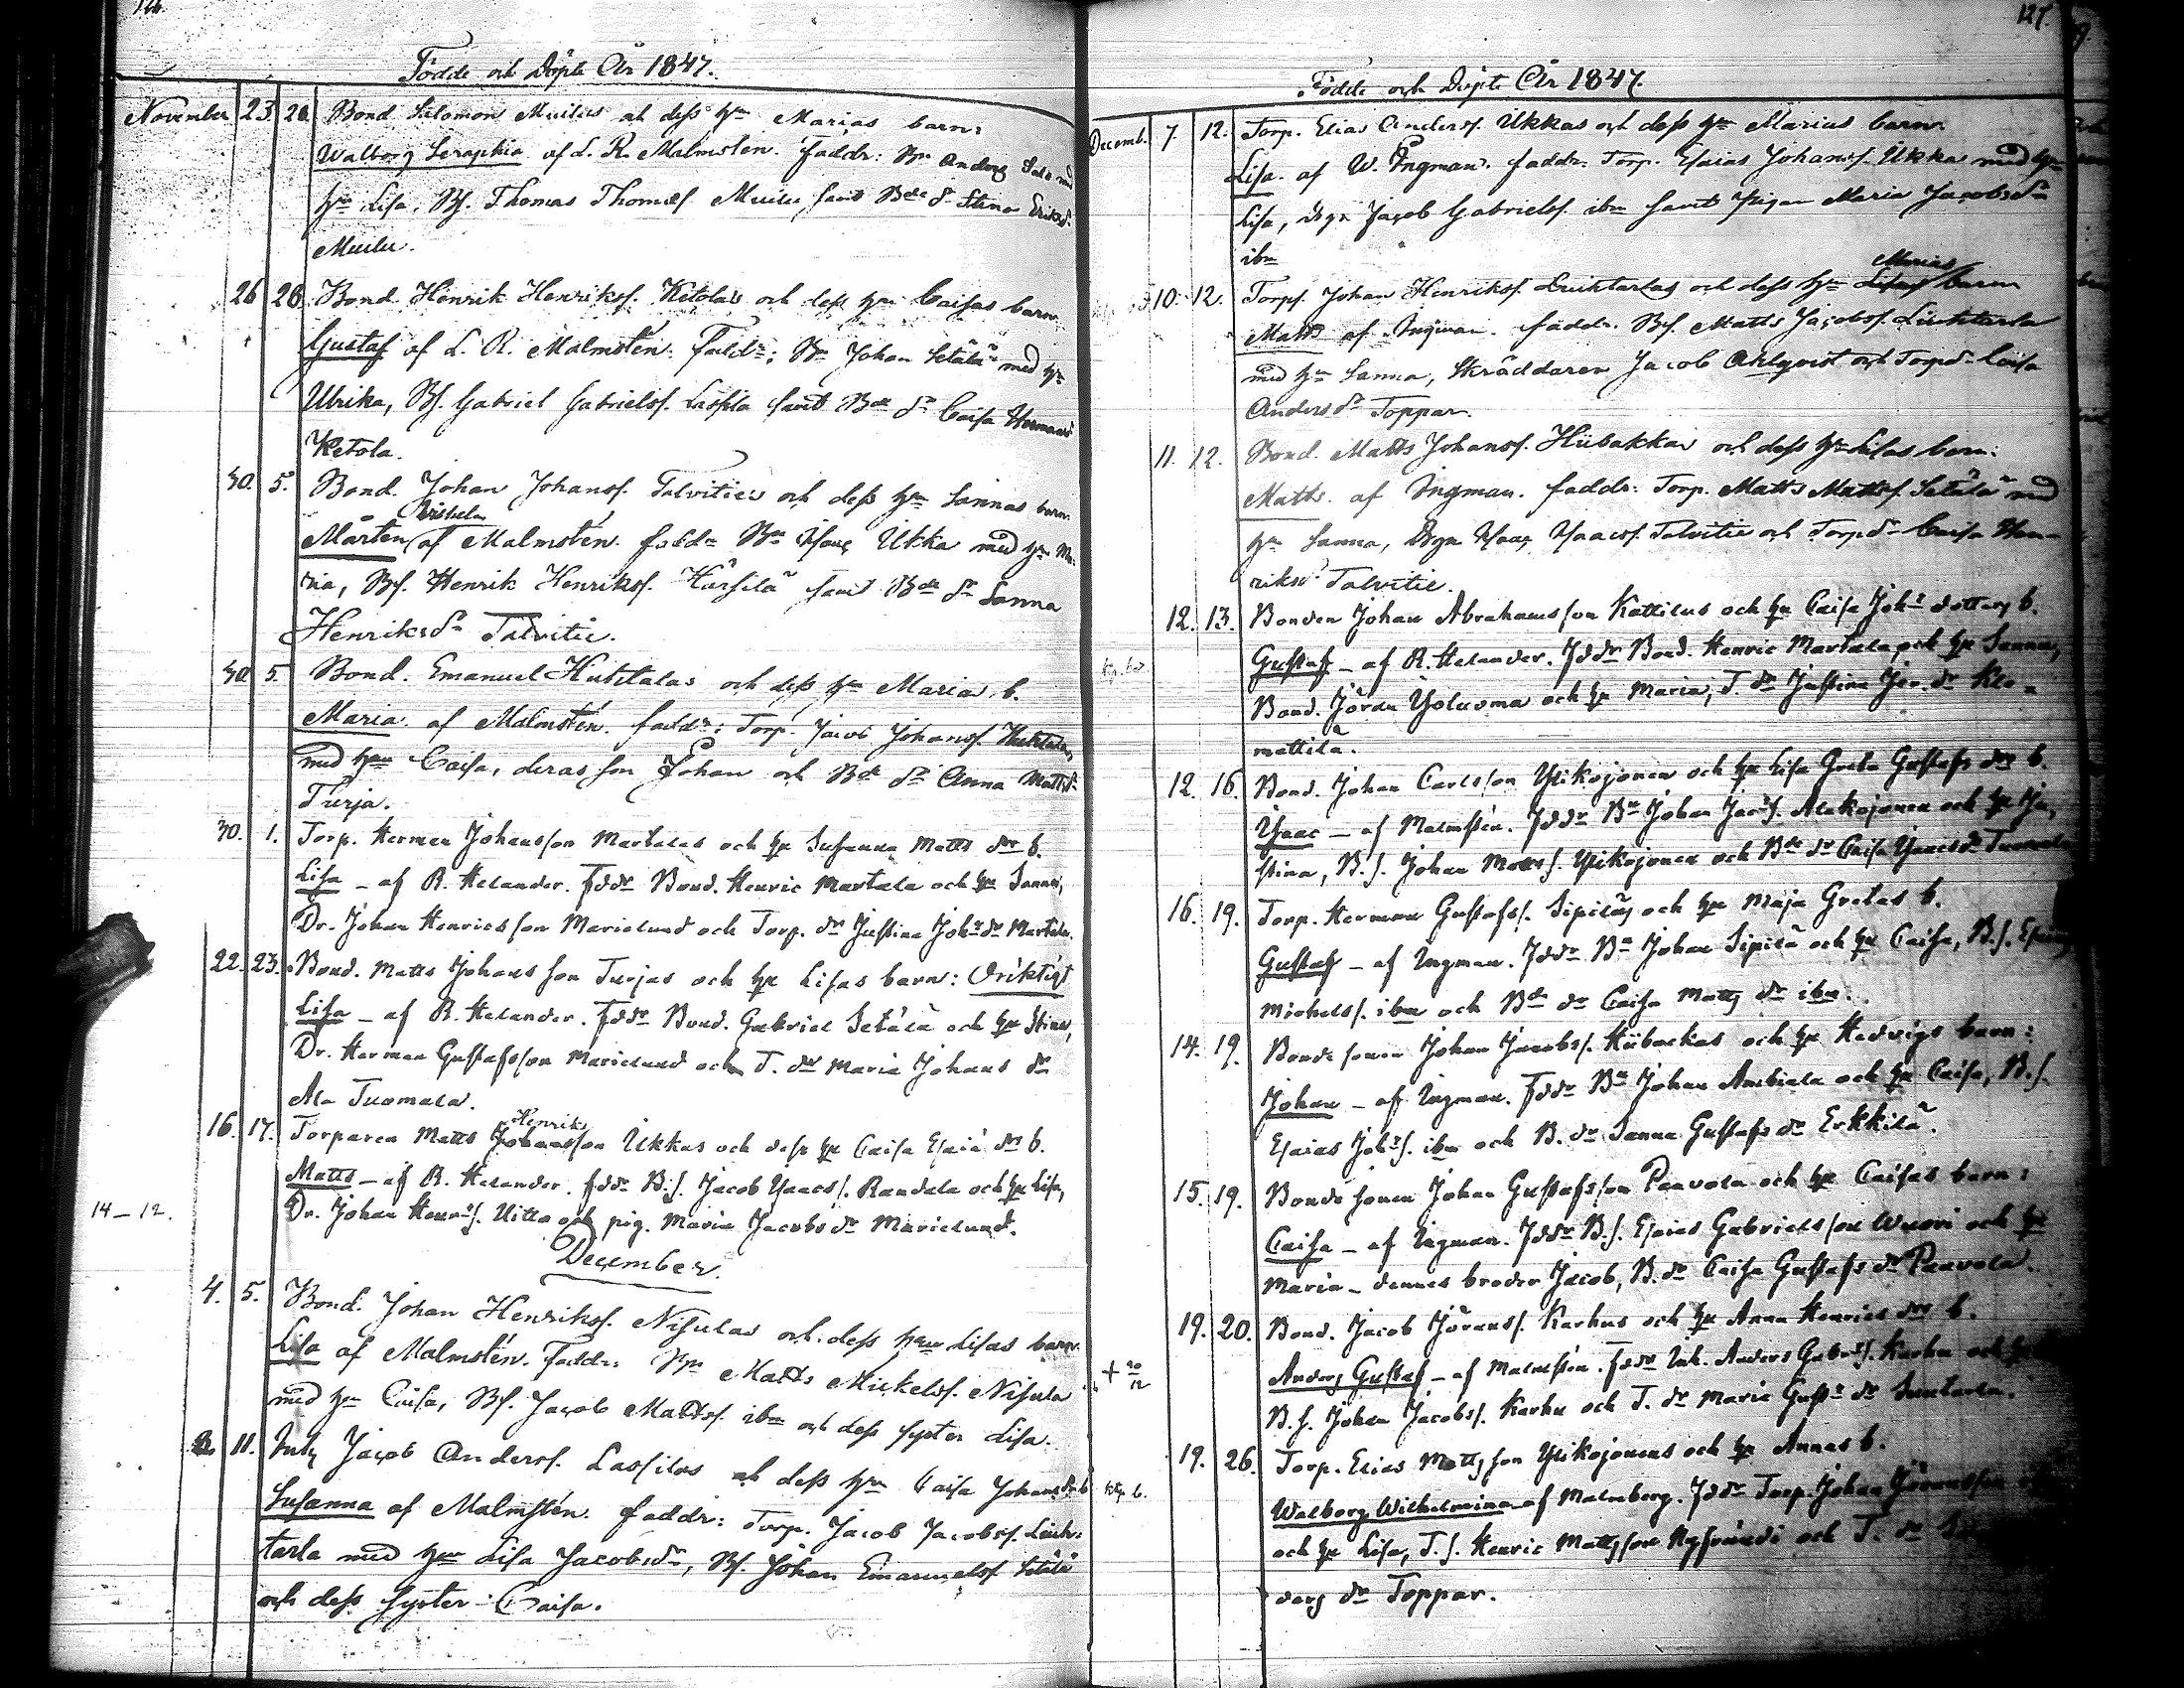 126.
Födde och Döpte År 1847.
November 23. 28. Bond. Salomon Muilus och dess hu Marias barn:
Walborg Seraphia af L. R. Malmstén. Faddr: Bn Anders med
hu Lisa, Bs. Thomas Thomæs. Muilu samt Bde dr Stina Eriksdr
Muilu.
26 28. Bond. Henrik Henrikss. Ketolas och dess hu Caisas barn
Gustaf af L. R. Malmstén. Faddr: Bn Johan Setälä med hu
Ulrika, Bs. Gabriel Gabrielss. Lassila samt Bde dr Caisa Hermans
Ketola.
30. 5. Bond. Johan Johanss. Talvities och dess hu Sannas barn
Wilhelm
Mårten af Malmstén. Faddr Bn Isaac Ukka med hu Ma-
ria, Bs. Henrik Henrikss. Härsilä samt Bde dr Sanna
Henriksdr Talvitie.
30. 5. Bond. Emanuel Huhtalas och dess hu Marias b.
Maria. af Malmstén. faddr: Torp. Jacob Johanss. Huhtala,
med hu Caisa, deras son Johan och Bde dr Anna Mattsdr
Turja.
30. 1. Torp. Herman Johansson Martalas och hu Susanna Matts drs b.
Lisa - af R. Helander. Fddr Bond. Henric Martala och hu Sanna,
Dr. Johan Henricsson Marielund och Torp. dr Justina Johs dr Martala.
22. 23. Bond. Matts Johansson Turjas och hu Lisas barn: Oriktigt
Lisa - af R. Helander. Fddr Bond. Gabriel Setälä och hu Stina,
Dr. Herman Gustafsson Marielund och T. dr Maria Johans dr
Ala Tuomala.
Henriks
16. 17. Torparen Matts Johansson Ukkas och dess hu Caisa Esaiæ drs b.
Matts - af R. Helander. fddr B.s. Jacob Isaacs. Randala och hu Lisa,
14-12. Dr. Johan Henrs. Uitto och pig. Maria Jacobs dr Marielund.
December.
4. 5. Bond. Johan Henrikss. Nisulas och dess hu Lisas barn
Lisa af Malmstén. Faddr: Bn Matts Mickelss. Nisula
med hu Caisa, Bs. Jacob Mattss. ibm och dess syster Lisa.
11. Inh. Jacob Anderss. Lassilas och dess hu Caisa Johansdrs b
Susanna af Malmstén. faddr: Torp. Jacob Jacobss. Liuh-
tarla med hu Lisa Jacobsdr, Bs. Johan Emanuelss. Setälä
och dess syster Caisa.
127.
Födde och Döpte År 1847.
Decemb. 7. 12. Torp. Elias Anderss. Ukkas och dess hu Marias barn
Lisa. af W. Ingman. faddr. Torp. Esaias Johanss. Ukka med hu
Lisa, drgn Jacob Gabrielss. ibm samt pigan Maria Jacobsdr
ibm
Marias
10. 12. Torps. Johan Henrikss. Liuhtarlas och dess hu Lisas barn
Matts af Ingman. faddr. Bs. Matts Jacobss. Liuhtarla
med hu Sanna, Skräddaren Jacob Ahlqvist och Torpdr Caisa
Anders dr Toppar.
11. 12. Bond. Matts Johanss. Hiibakkas och dess hu Lisas barn:
Matts. af Ingman. faddr: Torp. Matts Mattss. Setälä med
hu Sanna, Drgn Isaac Isaacss. Talvitie och Torpdr Caisa Hen-
riksdr Talvitie.
12. 13. Bonden Johan Abrahamsson Kattilus och hu Caisa Johs dotters b.
Gustaf - af R. Helander. Fddr Bond. Henric Martala och hu Sanna,
Bond. Jöran Yoluoma och hu Maria, T. dr Justina Jör. dr Kle-
mattila.
12. 16. Bond. Johan Carlsson Ylikojonen och hu Lisa Greta Gustafs drs b.
Isaac - af Malmstén. Fddr Bn Johan Jacs. Alakojonen och hu Ju-
stina, B.s. Johan Matts. Ylikojonen och Bde dr Caisa Isaacsdr Tuomala
16. 19. Torp. Herman Gustafss. Sipiläs och hu Maja Gretas b.
Gustaf - af Ingman. Fddr Bn Johan Sipilä och hu Caisa, B.s. Esaias
Michelss. ibm och Bde dr Caisa Matts dr ibm.
14. 19. Bondesonen Johan Jacobss. Hiibackas och hu Hedvigs barn:
Johan - af Ingman. Fddr Bn Johan Anbiala och hu Caisa, B.s.
Esaias Johs. ibm och B. dr Sanna Gustafs dr Erkkilä.
15. 19. Bondesonen Johan Gustafsson Paavola och hu Caisas barn:
Caisa - af Ingman. Fddr B.s. Esaias Gabrielsson Wuori och hu
Maria - dennes broder Jacob, B. dr Caisa Gustafs dr Paavola.
19. 20. Bond. Jacob Jöranss. Karhus och hu Anna Henrics drs b.
Anders Gustaf - af Malmstén. fddr Inh. Anders Gabrs. Karhu och hu
B.s. Johan Jacobss. Karhu och T. dr Maria Gusts dr Luntarla.
19. 26. Torp. Elias Mattsson Ylikojonens och hu Annas b.
Walborg Wilhelmina af Malmberg. Fddr Torp. Johan Jöransson
och hu Lisa, T.s. Henric Mattsson Nyfründi och T. dr
ders dr Toppar.